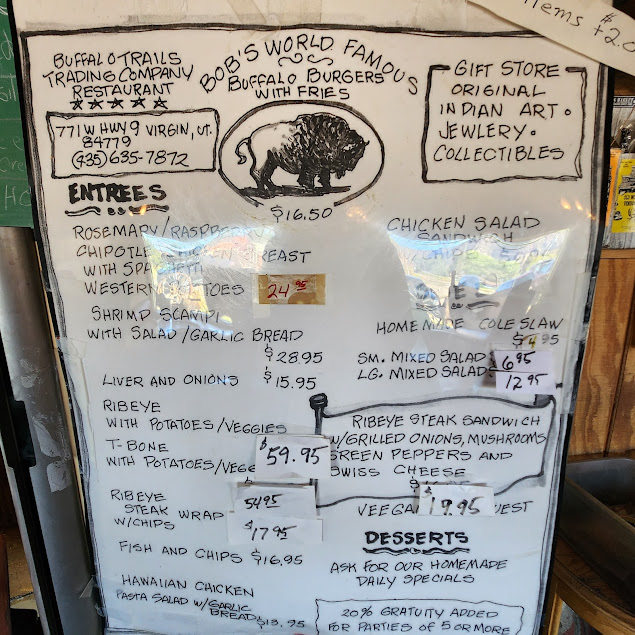 Items $2.0
BUFFALO TRAILS
TRADING COMPANY
RESTAURANT
★★★★★
771 W HWY 9 VIRGIN, UT.
84779
(435) 635-7872
BOB'S WORLD FAMOUS
BUFFALO BURGERS
WITH FRIES
$16.50
GIFT STORE
ORIGINAL
INDIAN ART.
JEWLERY.
COLLECTIBLES
ENTREES
ROSEMARY/RASPBERRY
CHIPOTLE CHICKEN BREAST
WITH SPAGHETTI
WESTERN
24 95
SHRIMP SCAMPI
WITH SALAD/GARLIC BREAD
$28.95
LIVER AND ONIONS $15.95
RIBEYE
WITH POTATOES/VEGGIES
T-BONE
WITH POTATOES/VEGG
$59.95
54 95
RIBEYE
STEAK WRAP
W/CHIPS
$17 95
FISH AND CHIPS $16.95
HAWAIIAN CHICKEN
PASTA SALAD W/GARLIC
BREAD $13.95
CHICKEN SALAD
SANDWICH
HOMEMADE COLE SLAW
$4.95
SM. MIXED SALAD $6 95
LG. MIXED SALAD 12 95
RIBEYE STEAK SANDWICH
W/GRILLED ONIONS, MUSHROOMS
GREEN PEPPERS AND
SWISS CHEESE
$19.95
DESSERTS
ASK FOR OUR HOMEMADE
DAILY SPECIALS
20% GRATUITY ADDED
FOR PARTIES OF 5 OR MORE